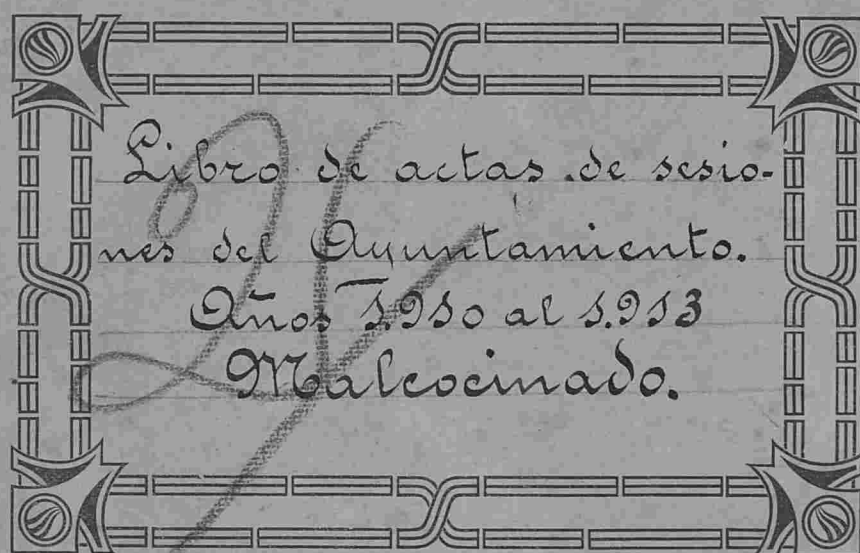 Libro de actas de sesio-
nes del Ayuntamiento.
Años 1.910 al 1.913
Malcocinado.